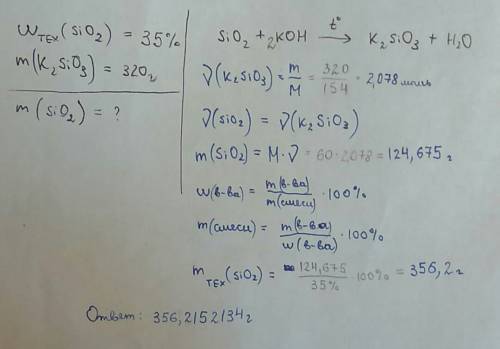 W тех (SiO₂) = 35%
m(K₂SiO₃) = 320г
m (SiO₂) = ?
SiO₂ + 2KOH t° → K₂SiO₃ + H₂O
ν(K₂SiO₃) = m/M = 320/154 = 2,078 моль
ν(SiO₂) = ν(K₂SiO₃)
m(SiO₂) = M · ν = 60 · 2,078 = 124,675 г
w(в-ва) = m(в-ва)/m(смеси) · 100%
m(смеси) = m(в-ва)/w(в-ва) · 100%
m тех (SiO₂) = 124,675/35% · 100% = 356,2 г
Ответ: 356,2152134 г